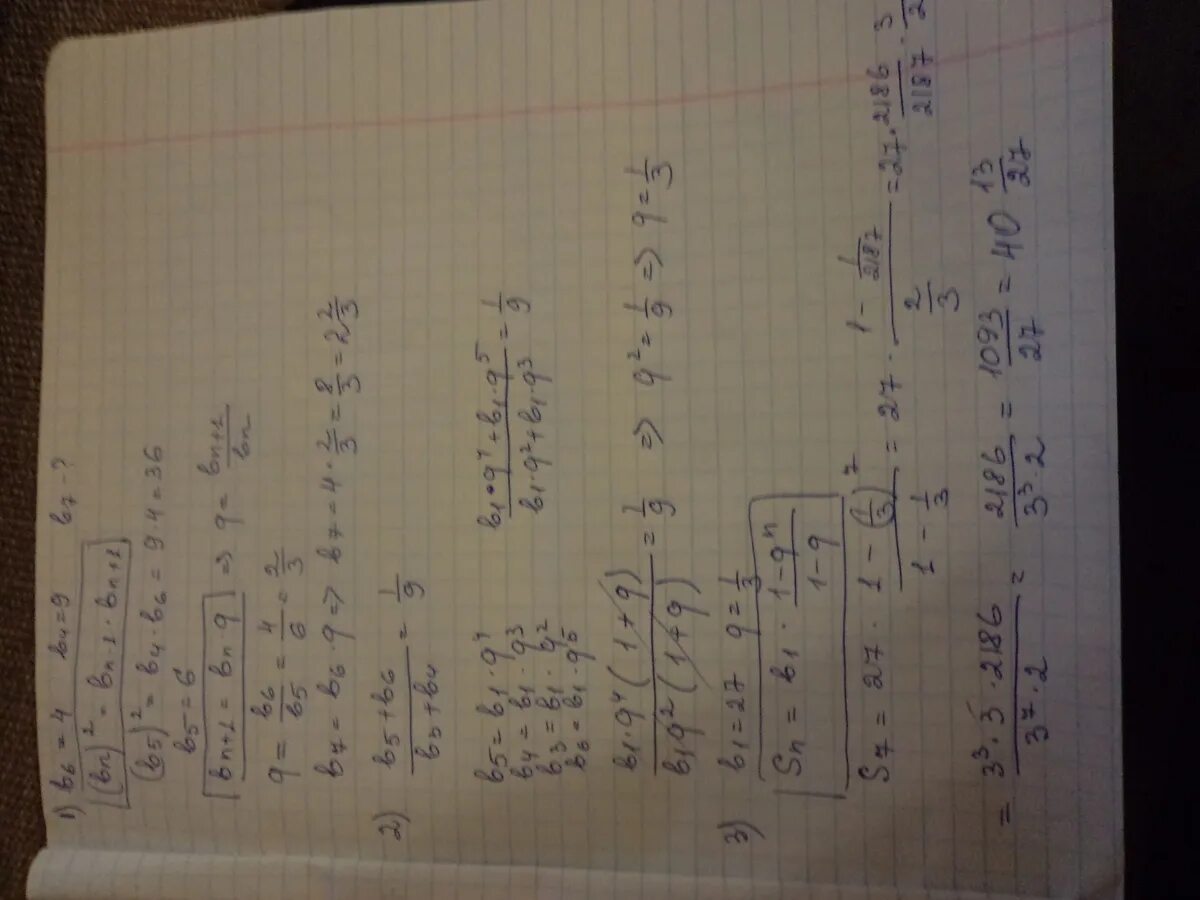 1) b₆ = 4 b₄ = 9 b₇ - ?
(bₙ)² = bₙ₋₁ · bₙ₊₁
(b₅)² = b₄ · b₆ = 9 · 4 = 36
b₅ = 6
bₙ₊₁ = bₙ q => q = bₙ₊₁/bₙ
q = b₆/b₅ = 4/6 = 2/3
b₇ = b₆ · q => b₇ = 4 · 2/3 = 8/3 = 2 2/3
2) (b₅ + b₆)/(b₃ + b₄) = 1/9
b₅ = b₁ · q⁴
b₄ = b₁ · q³
b₃ = b₁ · q²
b₆ = b₁ · q⁵
(b₁ · q⁴ + b₁ · q⁵)/(b₁ · q² + b₁ · q³) = 1/9
b₁ · q⁴ (1 + q)/b₁q² (1 + q) = 1/9 => q² = 1/9 => q = 1/3
3) b₁ = 27 q = 1/3
Sₙ = b₁ · (1 - qⁿ)/(1 - q)
S₇ = 27 · (1 - (1/3)⁷)/(1 - 1/3) = 27 · (1 - 1/2187)/(2/3) = 27 · 2186/2187 · 3/2
= (3³ · 3 · 2186)/(3⁷ · 2) = 2186/(3³ · 2) = 1093/27 = 40 13/27